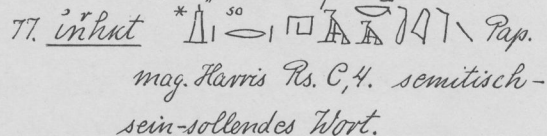 77. inhkt * so Pap.
mag. Harris Rs. C,4. semitisch-
sein-sollendes Wort.